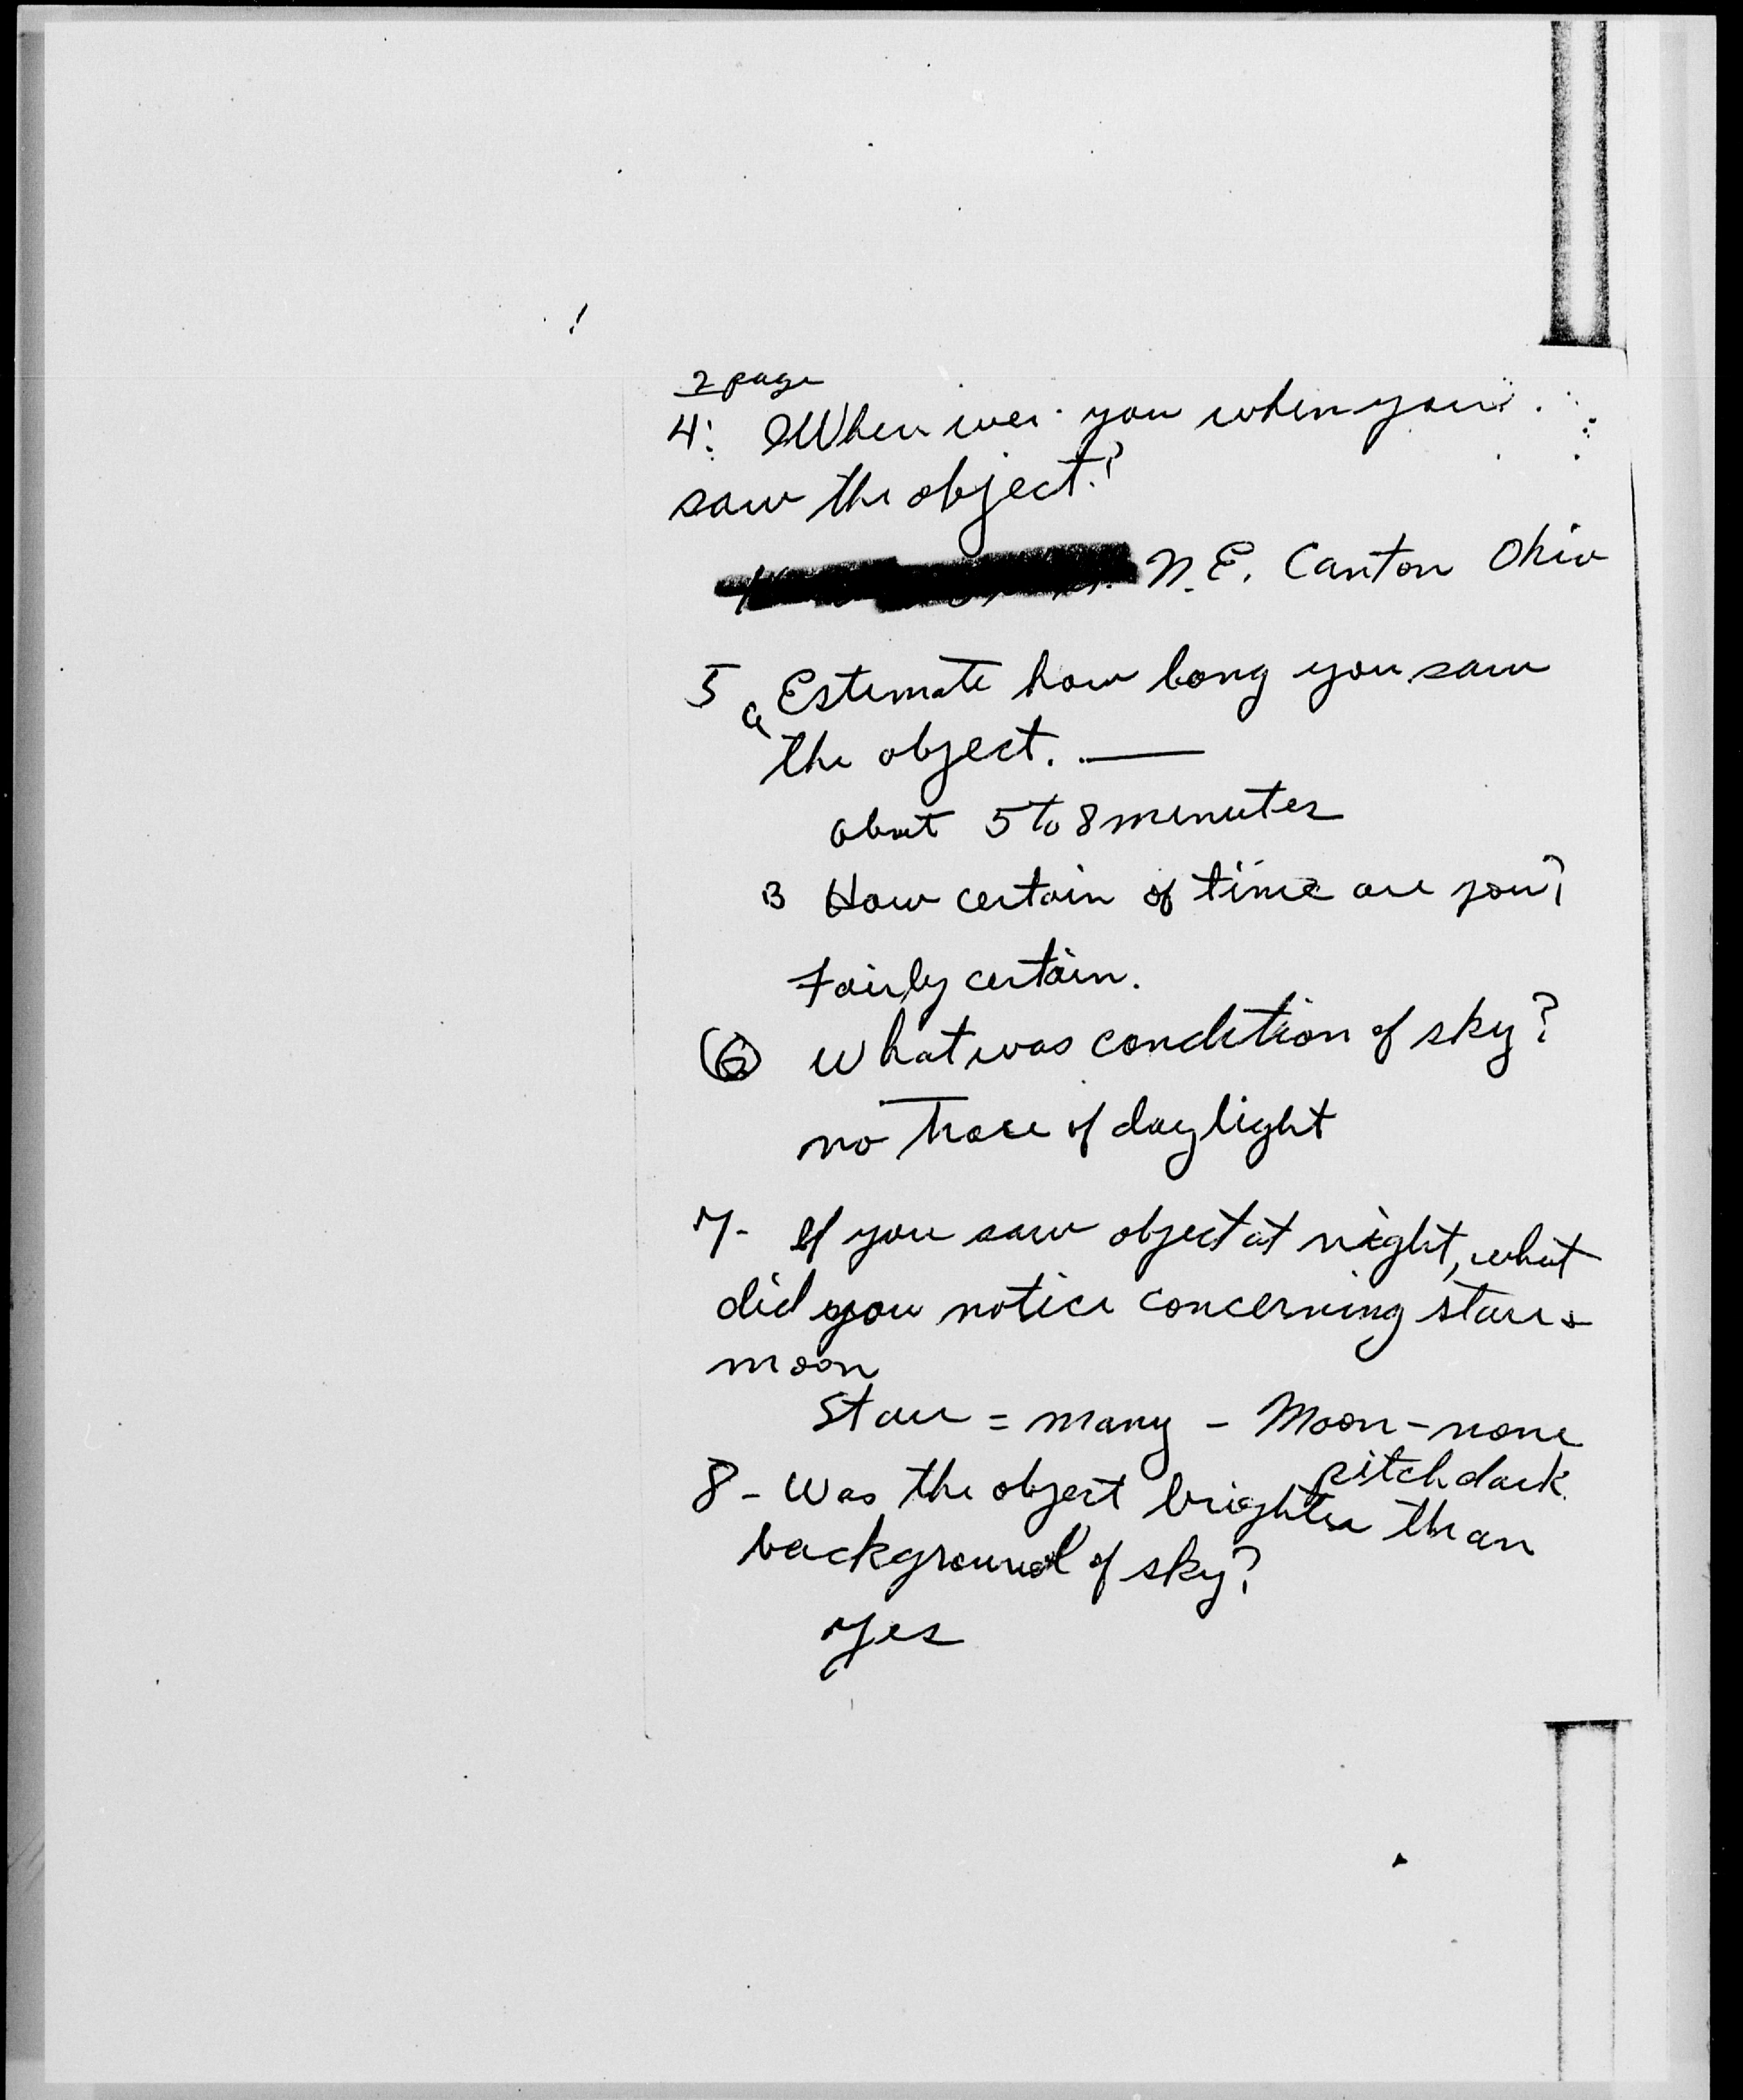 2 page
4: Where were you when you
saw the object?
N.E. Canton Ohio
5 a Estimate how long you saw
the object. —
about 5 to 8 minutes
B How certain of time are you?
Fairly certain.
(6) What was condition of sky?
no Trace of daylight
7- If you saw object at night, what
did you notice concerning stars &
moon
Stars = many - Moon - none
pitch dark
8 - Was the object brighter than
background of sky?
Yes